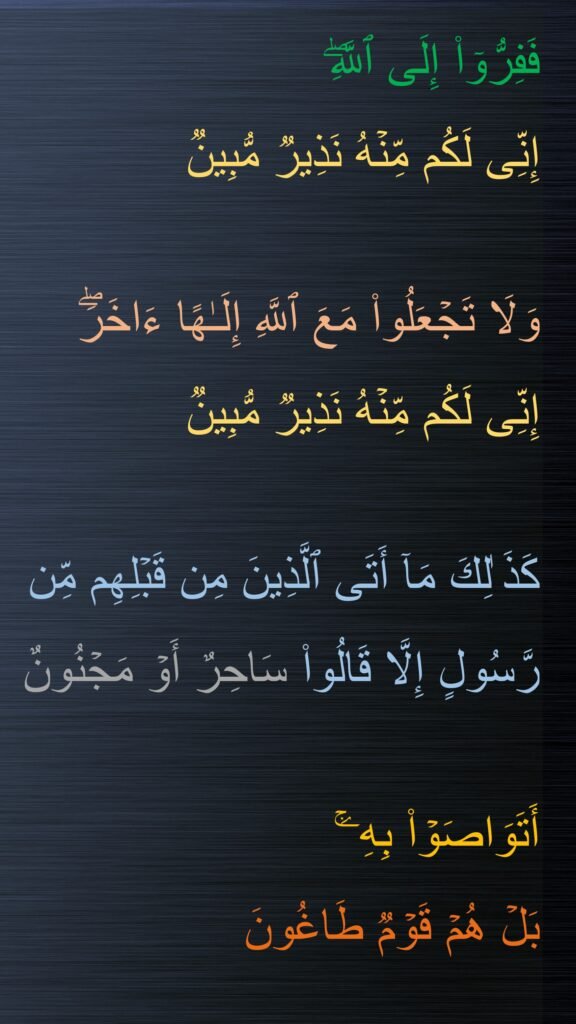 فَفِرُّوٓا۟ إِلَى ٱللَّهِۖ
إِنِّى لَكُم مِّنْهُ نَذِيرٌۭ مُّبِينٌۭ
وَلَا تَجْعَلُوا۟ مَعَ ٱللَّهِ إِلَـٰهًا ءَاخَرَۖ
إِنِّى لَكُم مِّنْهُ نَذِيرٌۭ مُّبِينٌۭ
كَذَٰلِكَ مَآ أَتَى ٱلَّذِينَ مِن قَبْلِهِم مِّن
رَّسُولٍ إِلَّا قَالُوا۟ سَاحِرٌ أَوْ مَجْنُونٌ
أَتَوَاصَوْا۟ بِهِۦۚ
بَلْ هُمْ قَوْمٌۭ طَاغُونَ